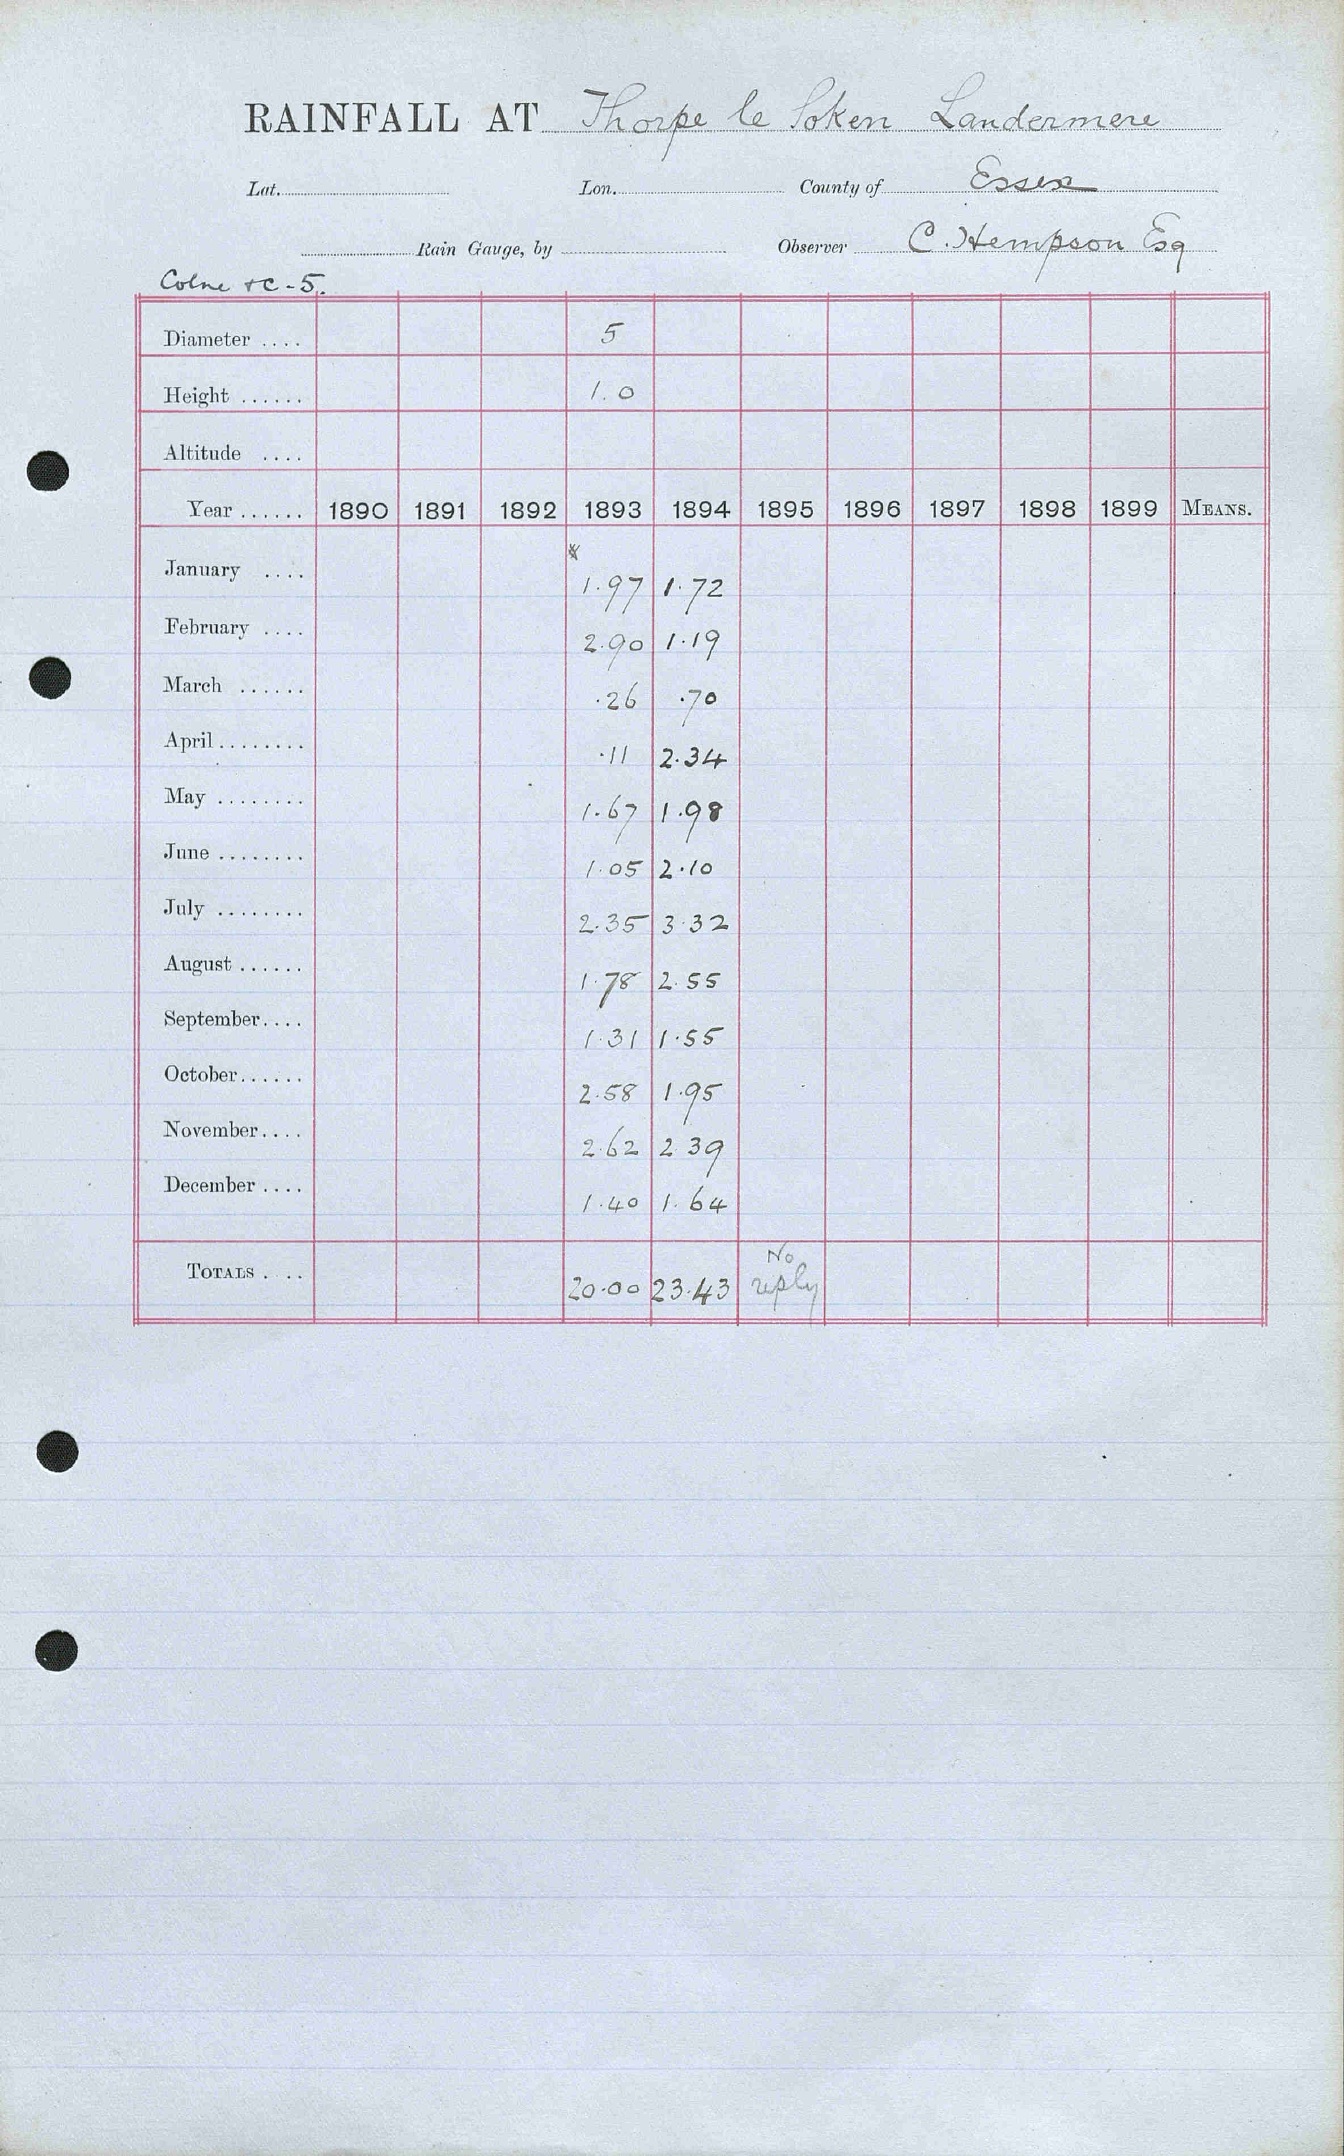 RAINFALL AT Thorpe le Soken Landermere
Lat. Lon. County of Essex
Rain Gauge, by Observer C. Hempson Esq
Colne &c - 5.
Diameter .... 5
Height ...... 1.0
Altitude ....
Year ...... 1890 1891 1892 1893 1894 1895 1896 1897 1898 1899 MEANS.
January .... * 1.97 1.72
February .... 2.90 1.19
March ...... .26 .70
April ........ .11 2.34
May ........ 1.67 1.98
June ........ 1.05 2.10
July ........ 2.35 3.32
August ...... 1.78 2.55
September.... 1.31 1.55
October...... 2.58 1.95
November.... 2.62 2 39
December .... 1.40 1.64
TOTALS .... 20.00 23.43 No reply